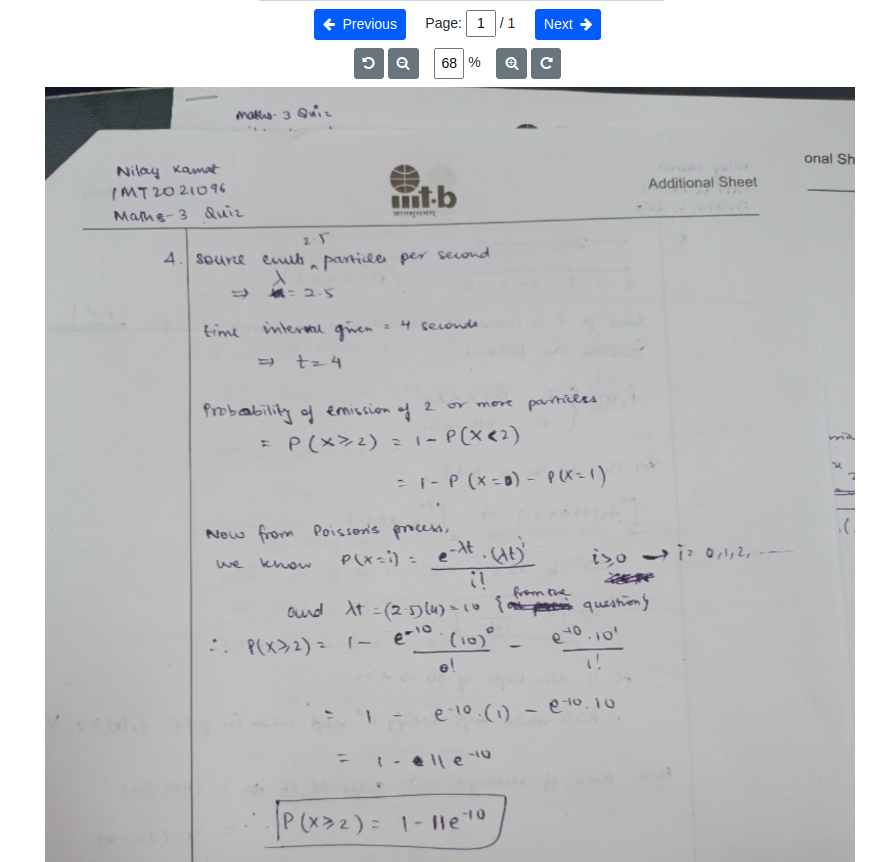 Previous Page: 1 / 1 Next
68 %
Maths-3 Quiz
onal Sh
Nilay Kamat
IMT2021096
Maths-3 Quiz
iiit-b
Additional Sheet
2.5
4. Source emits ^ particles per second
⇒ λ = 2.5
time interval given = 4 seconds
⇒ t = 4
Probability of emission of 2 or more particles
= P(X≥2) = 1 - P(X<2)
= 1 - P(X=0) - P(X=1)
Now from Poisson's process,
we know P(X=i) = e^-λt . (λt)^i / i! i≥0 → i = 0,1,2, -----
and λt = (2.5)(4) = 10 {from the question}
∴ P(X≥2) = 1 - e^-10 . (10)^0 / 0! - e^-10 . 10^1 / 1!
= 1 - e^-10 . (1) - e^-10 . 10
= 1 - 11 e^-10
∴ P(X≥2) = 1 - 11e^-10